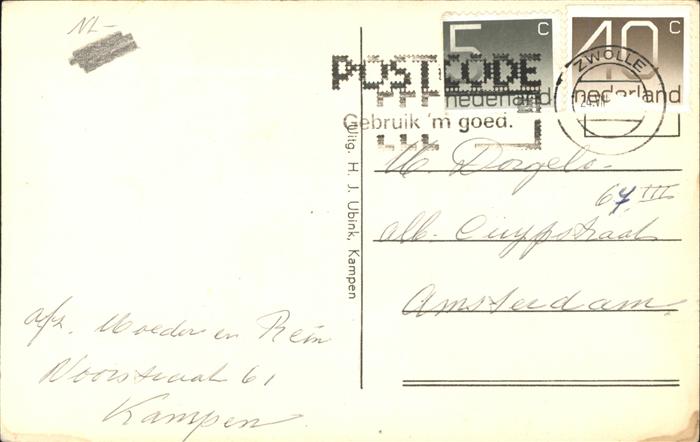 NL-
5 c
nederland
40 c
nederland
ZWOLLE
POSTCODE
Gebruik 'm goed.
Uitg. H. J. Ubink, Kampen
Dorgelo-
64 III
alb. Cuypstraat
Amsterdam.
afz. Moeder en Rein
Voorstraat 61
Kampen